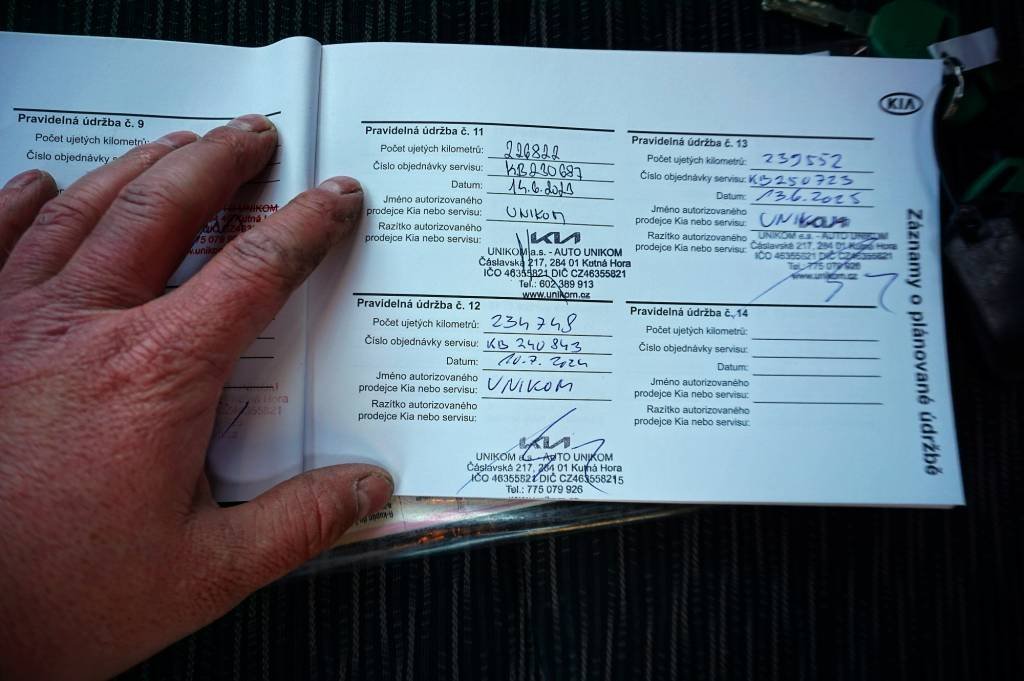 Pravidelná údržba č. 9
Počet ujetých kilometrů:
Číslo objednávky
Pravidelná údržba č. 11
Počet ujetých kilometrů: 226822
Číslo objednávky servisu: KB220687
Datum: 14.6.2023
Jméno autorizovaného
prodejce Kia nebo servisu: UNIKOM
Razítko autorizovaného
prodejce Kia nebo servisu:
KIA
UNIKOM a.s. - AUTO UNIKOM
Čáslavská 217, 284 01 Kutná Hora
IČO 46355821 DIČ CZ46355821
Tel.: 602 389 913
www.unikom.cz
Pravidelná údržba č. 12
Počet ujetých kilometrů: 234748
Číslo objednávky servisu: KB240843
Datum: 10.7.2024
Jméno autorizovaného
prodejce Kia nebo servisu: UNIKOM
Razítko autorizovaného
prodejce Kia nebo servisu:
KIA
UNIKOM a.s. - AUTO UNIKOM
Čáslavská 217, 284 01 Kutná Hora
IČO 46355821 DIČ CZ46355821
Tel.: 775 079 926
KIA
Pravidelná údržba č. 13
Počet ujetých kilometrů: 239552
Číslo objednávky servisu: KB250723
Datum: 13.6.2025
Jméno autorizovaného
prodejce Kia nebo servisu: UNIKOM
Razítko autorizovaného
prodejce Kia nebo servisu:
UNIKOM a.s. - AUTO UNIKOM
Čáslavská 217, 284 01 Kutná Hora
IČO 46355821 DIČ CZ46355821
Tel.: 775 079 926
www.unikom.cz
Pravidelná údržba č. 14
Počet ujetých kilometrů:
Číslo objednávky servisu:
Datum:
Jméno autorizovaného
prodejce Kia nebo servisu:
Razítko autorizovaného
prodejce Kia nebo servisu:
Záznamy o plánované údržbě